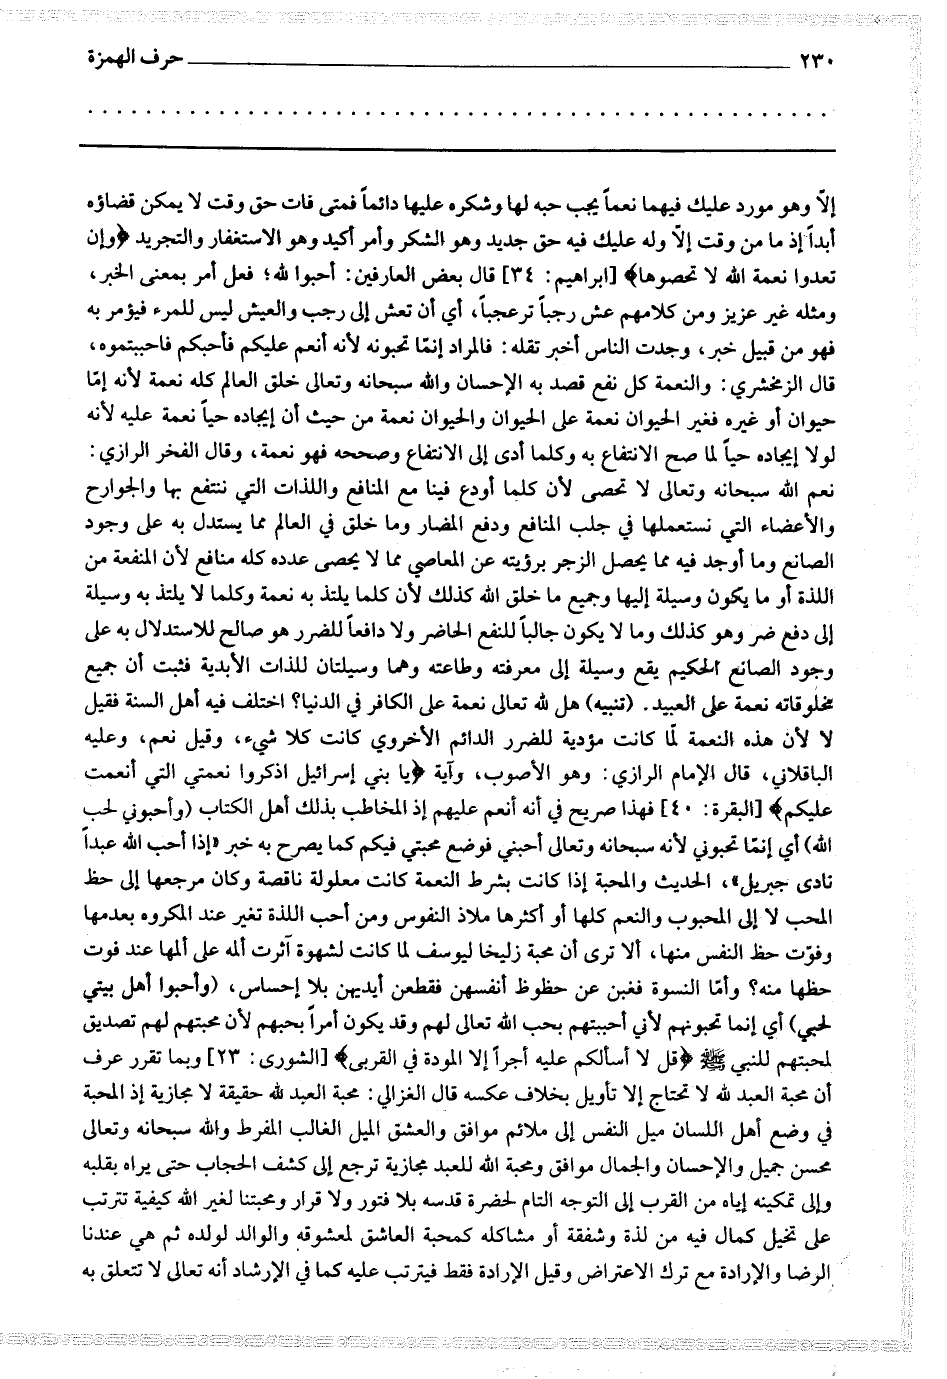 ٢٣٠ حرف الهمزة
إلاّ وهو مورد عليك فيهما نعماً يجب حبه لها وشكره عليها دائماً فمتى فات حق وقت لا يمكن قضاؤه
أبداً إذ ما من وقت إلاّ وله عليك فيه حق جديد وهو الشكر وأمر أكيد وهو الاستغفار والتجريد ﴿وإن
تعدوا نعمة الله لا تحصوها﴾ [ابراهيم: ٣٤] قال بعض العارفين: أحبوا لله؛ فعل أمر بمعنى الخبر،
ومثله غير عزيز ومن كلامهم عش رجباً ترعجباً، أي أن تعش إلى رجب والعيش ليس للمرء فيؤمر به
فهو من قبيل خبر، وجدت الناس أخبر تقله: فالمراد إنمّا تحبونه لأنه أنعم عليكم فأحبكم فاحببتموه،
قال الزمخشري: والنعمة كل نفع قصد به الإحسان والله سبحانه وتعالى خلق العالم كله نعمة لأنه إمّا
حيوان أو غيره فغير الحيوان نعمة على الحيوان والحيوان نعمة من حيث أن إيجاده حياً نعمة عليه لأنه
لولا إيجاده حياً لما صح الانتفاع به وكلما أدى إلى الانتفاع وصححه فهو نعمة، وقال الفخر الرازي:
نعم الله سبحانه وتعالى لا تحصى لأن كلما أودع فينا مع المنافع واللذات التي ننتفع بها والجوارح
والأعضاء التي نستعملها في جلب المنافع ودفع المضار وما خلق في العالم مما يستدل به على وجود
الصانع وما أوجد فيه مما يحصل الزجر برؤيته عن المعاصي مما لا يحصى عدده كله منافع لأن المنفعة من
اللذة أو ما يكون وسيلة إليها وجميع ما خلق الله كذلك لأن كلما يلتذ به نعمة وكلما لا يلتذ به وسيلة
إلى دفع ضر وهو كذلك وما لا يكون جالباً للنفع الحاضر ولا دافعاً للضرر هو صالح للاستدلال به على
وجود الصانع الحكيم يقع وسيلة إلى معرفته وطاعته وهما وسيلتان للذات الأبدية فثبت أن جميع
مخلوقاته نعمة على العبيد. (تنبيه) هل لله تعالى نعمة على الكافر في الدنيا؟ اختلف فيه أهل السنة فقيل
لا لأن هذه النعمة لمّا كانت مؤدية للضرر الدائم الأخروي كانت كلا شيء، وقيل نعم، وعليه
الباقلاني، قال الإمام الرازي: وهو الأصوب، وآية ﴿يا بني إسرائيل اذكروا نعمتي التي أنعمت
عليكم﴾ [البقرة: ٤٠] فهذا صريح في أنه أنعم عليهم إذ المخاطب بذلك أهل الكتاب (وأحبوني لحب
الله) أي إنمّا تحبوني لأنه سبحانه وتعالى أحبني فوضع محبتي فيكم كما يصرح به خبر «إذا أحب الله عبداً
نادى جبريل»، الحديث والمحبة إذا كانت بشرط النعمة كانت معلولة ناقصة وكان مرجعها إلى حظ
المحب لا إلى المحبوب والنعم كلها أو أكثرها ملاذ النفوس ومن أحب اللذة تغير عند المكروه بعدمها
وفوّت حظ النفس منها، ألا ترى أن محبة زليخا ليوسف لما كانت لشهوة آثرت ألمه على ألمها عند فوت
حظها منه؟ وأمّا النسوة فغبن عن حظوظ أنفسهن فقطعن أيديهن بلا إحساس، (وأحبوا أهل بيتي
لحبي) أي إنما تحبونهم لأني أحببتهم بحب الله تعالى لهم وقد يكون أمراً بحبهم لأن محبتهم لهم تصديق
لمحبتهم للنبي ﷺ ﴿قل لا أسألكم عليه أجراً إلا المودة في القربى﴾ [الشورى: ٢٣] وبما تقرر عرف
أن محبة العبد لله لا تحتاج إلا تأويل بخلاف عكسه قال الغزالي: محبة العبد لله حقيقة لا مجازية إذ المحبة
في وضع أهل اللسان ميل النفس إلى ملائم موافق والعشق الميل الغالب المفرط والله سبحانه وتعالى
محسن جميل والإحسان والجمال موافق ومحبة الله للعبد مجازية ترجع إلى كشف الحجاب حتى يراه بقلبه
وإلى تمكينه إياه من القرب إلى التوجه التام لحضرة قدسه بلا فتور ولا قرار ومحبتنا لغير الله كيفية تترتب
على تخيل كمال فيه من لذة وشفقة أو مشاكله كمحبة العاشق لمعشوقه والوالد لولده ثم هي عندنا
الرضا والإرادة مع ترك الاعتراض وقيل الإرادة فقط فيترتب عليه كما في الإرشاد أنه تعالى لا تتعلق به